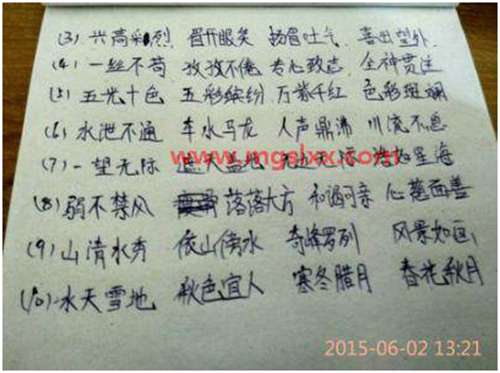 (3) 兴高彩烈 眉开眼笑 扬眉吐气 喜出望外
(4) 一丝不苟 孜孜不倦 专心致志 全神贯注
(5) 五光十色 五彩缤纷 万紫千红 色彩斑斓
(6) 水泄不通 车水马龙 人声鼎沸 川流不息
(7) 一望无际 浩如星海
www.mgslxx.com
(8) 弱不禁风 落落大方 和谒可亲 心慈面善
(9) 山清水秀 依山傍水 奇峰罗列 风景如画
(10) 水天雪地 秋色宜人 寒冬腊月 春花秋月
2015-06-02 13:21